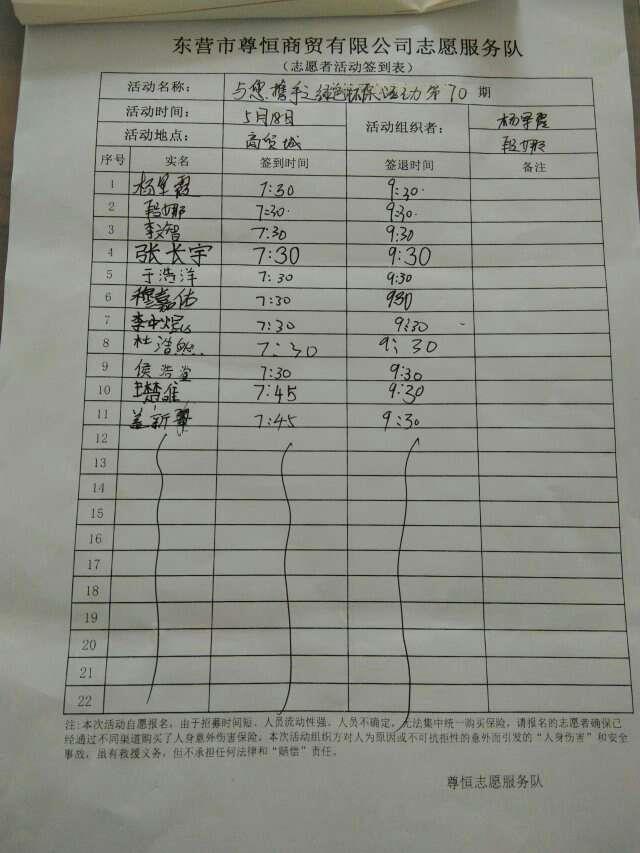 东营市尊恒商贸有限公司志愿服务队
(志愿者活动签到表)
活动名称: 与您携手 绿色环保活动第70期
活动时间: 5月18日 活动组织者: 杨军霞
活动地点: 商贸城 段娜
序号 实名 签到时间 签退时间 备注
1 杨军霞 7:30 9:30
2 段娜 7:30 9:30
3 李文智 7:30 9:30
4 张长宇 7:30 9:30
5 于浩洋 7:30 9:30
6 穆嘉佑 7:30 930
7 7:30 9:30
8 杜浩 7:30 9:30
9 侯浩堂 7:30 9:30
10 楚雄 7:45 9:30
11 盖新 7:45 9:30
12
13
14
15
16
17
18
19
20
21
22
注:本次活动自愿报名,由于招募时间短、人员流动性强、人员不确定,无法集中统一购买保险,请报名的志愿者确保已
经通过不同渠道购买了人身意外伤害保险。本次活动组织方对人为原因或不可抗拒性的意外而引发的“人身伤害”和安全
事故,虽有救援义务,但不承担任何法律和“赔偿”责任。
尊恒志愿服务队